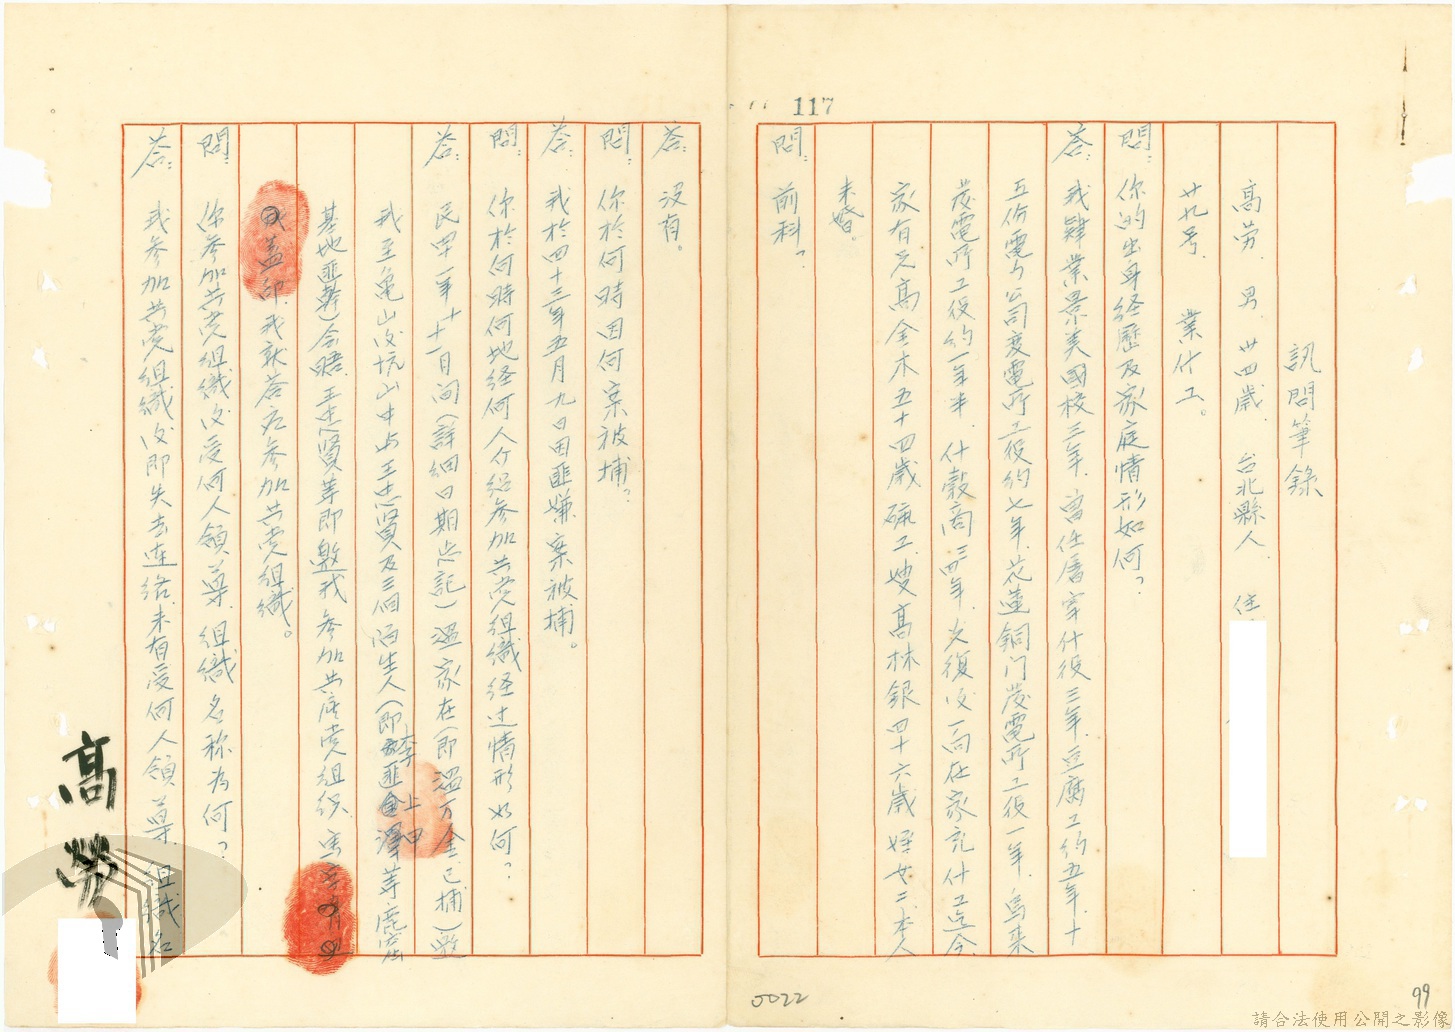 117
訊問筆錄
高劳．男．卅四歲．台北縣人．住
廿九号．業什工。
問：你的出身経歷及家庭情形如何？
答：我肄業景美國校三年．曾任厝宰什役三年．豆腐工約五年．十
五份電力公司変電所工役約七年．花蓮銅门發電所工役一年．烏来
發電所工役約一年半．什穀商三四年．光復後一向在家記什工迄今．
家有兄高金木五十四歲砿工．嫂高林銀四十六歲姪女二．本人
未婚。
問：前科？
答：没有。
問：你於何時因何案被捕？
答：我於四十三年五月九日因匪嫌案被捕。
問：你於何時何地経何人介紹参加共党組織経过情形如何？
答：民卅一年十十一月间（詳細日期忘記）溫家在（即溫万金已捕）邀
我至亀山後坑山中与王忠賢及三個陌生人（即李匪上田澤等鹿窟
基地匪幹）会晤．王忠賢等即邀我参加共産党組织．
我蓋印．我就答应参加共党組織。
問：你参加共党組織後受何人領導．組織名称为何？
答：我参加共党組織後即失去連络．未有受何人領導．組織名
高勞
0022
99
請合法使用公開之影像